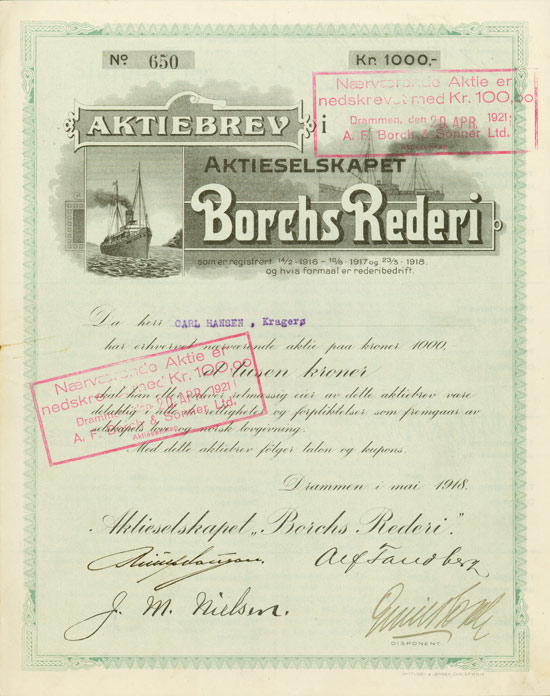 No 650 Kr. 1000,-
Nærværende Aktie er
nedskrevet med Kr. 100,00
Drammen, den 20 APR. 1921
A. F. Borch & Sønner, Ltd.
Aktieselskap
AKTIEBREV i
AKTIESELSKAPET
Borchs Rederi
som er registrert 14/2 - 1916 – 19/6 - 1917 og 23/5 - 1918.
og hvis formaal er rederibedrift.
Da herr CARL HANSEN, Kragerø
har erhvervet nærværende aktie paa kroner 1000,
et tusen kroner
skal han som lovmassig eier av dette aktiebrev være
delaktig i alle de rettigheter og forpliktelser som fremgaar av
selskapets love og norsk lovgivning.
Med dette aktiebrev følger talon og kupons.
Nærværende Aktie er
nedskrevet med Kr. 100,00
Drammen, den 20 APR. 1921
A. F. Borch & Sønner, Ltd.
Aktieselskap
Drammen i mai 1918.
Aktieselskapet „Borchs Rederi".
Alf Tandberg
J. M. Nielsen.
DISPONENT.